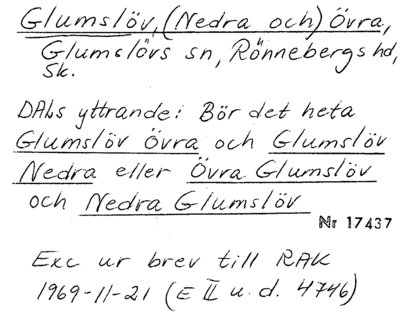 Glumslöv, (Nedra och) Övra,
Glumslövs sn, Rönnebergs hd,
Sk.
DALs yttrande: Bör det heta
Glumslöv Övra och Glumslöv
Nedra eller Övra Glumslöv
och Nedra Glumslöv
Nr 17437
Exc ur brev till RAK
1969-11-21 (E II u.d. 4746)